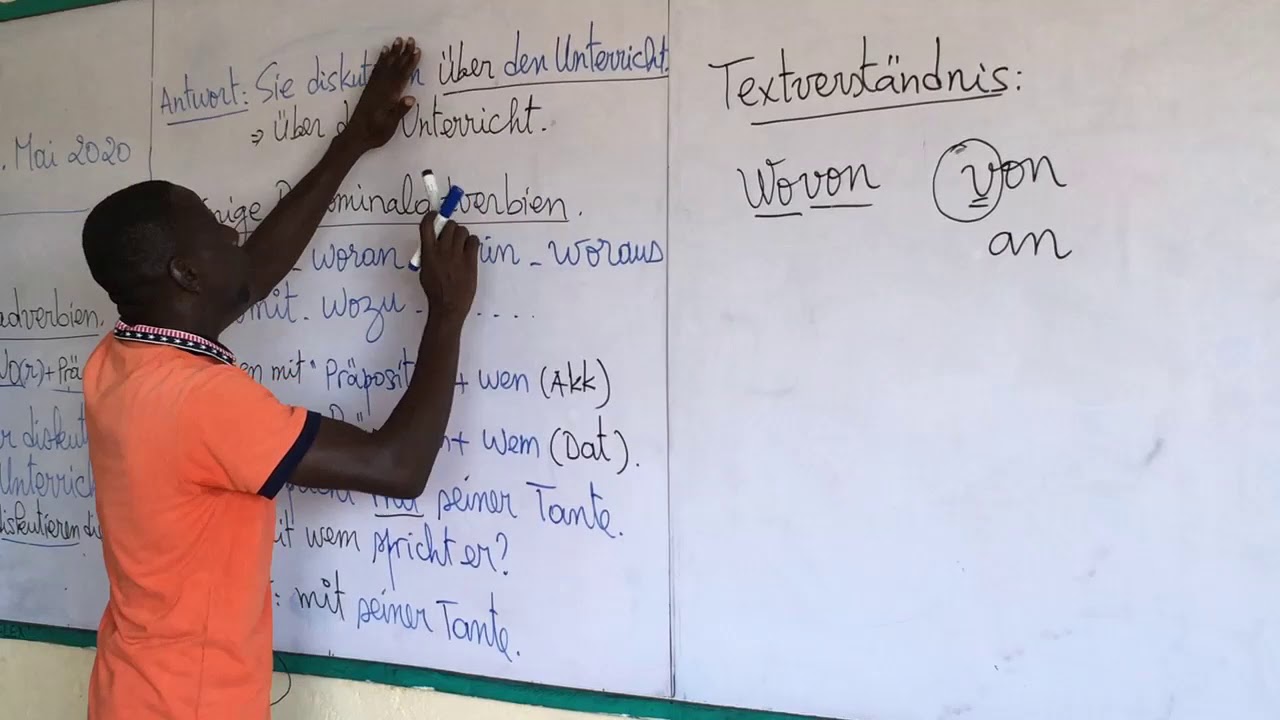 . Mai 2020
adverbien.
Wo(r)+Prä
diskut
Unterrich
diskutieren die
Antwort: Sie diskut n über den Unterricht.
⇒ über d Unterricht.
nige ominaladverbien.
- woran rin - woraus
mit - wozu - . . . .
en mit "Präposit + wen (Akk)
+ wem (Dat).
mit seiner Tante.
it wem spricht er?
: mit seiner Tante.
Textverständnis:
Wovon von
an